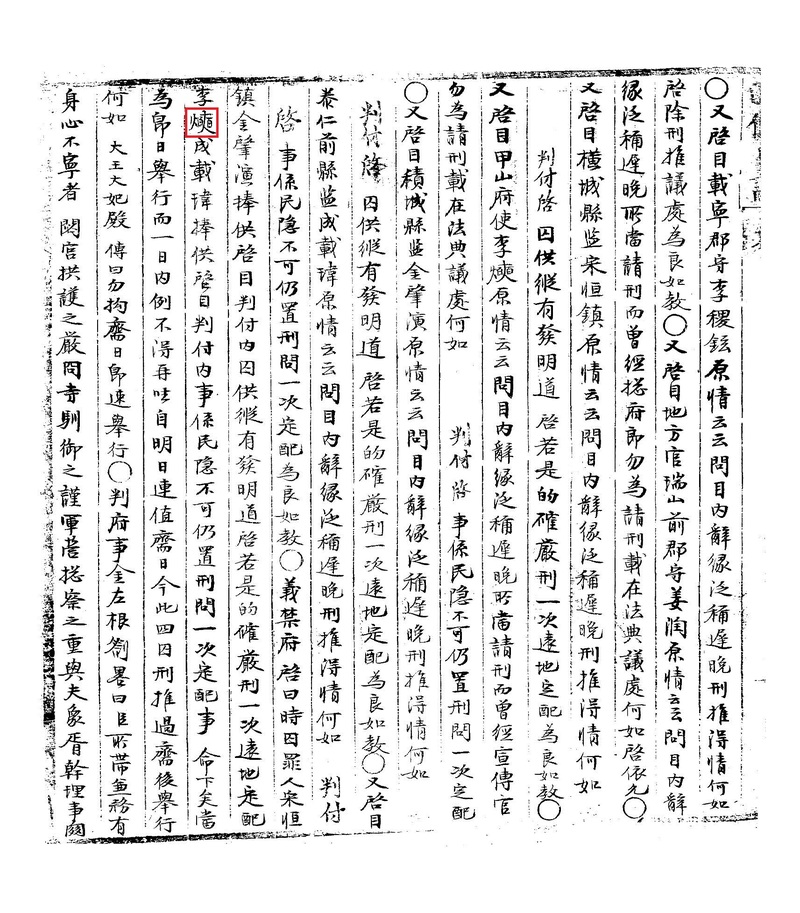 ○又啓目載寧郡守李稷鉉原情云云問目內辭緣泛稱遲晩刑推得情何如
啓除刑推議處爲良如敎○又啓目地方官瑞山前郡守姜洵原情云云問目內辭
緣泛稱遲晩所當請刑而曾經摠府郎勿爲請刑載在法典議處何如啓依允○
又啓目橫城縣監宋恒鎭原情云云問目內辭緣泛稱遲晩刑推得情何如
判付啓 囚供縱有發明道 啓若是的確嚴刑一次遠地定配爲良如敎○
又啓目甲山府使李熀原情云云問目內辭緣泛稱遲晩所當請刑而曾經宣傳官
勿爲請刑載在法典議處何如 判付啓 事係民隱不可仍置刑問一次定配
○又啓目積城縣監金肇演原情云云問目內辭緣泛稱遲晩刑推得情何如
判付啓 囚供縱有發明道 啓若是的確嚴刑一次遠地定配爲良如敎○又啓目
泰仁前縣監成載瑋原情云云問目內辭緣泛稱遲晩刑推得情何如 判付
啓 事係民隱不可仍置刑問一次定配爲良如敎○義禁府 啓曰時囚罪人宋恒
鎭金肇演捧供啓目判付內囚供縱有發明道啓若是的確嚴刑一次遠地定配
李 成載瑋捧供啓目判付內事係民隱不可仍置刑問一次定配事 命下矣當
爲卽日擧行而一日內例不得再 自明日連値齋日今此四囚刑推過齋後擧行
何如 大王大妃殿 傳曰勿拘齋日卽速擧行○判府事金左根箚畧曰臣所帶兼務有
身心不寧者 闕宮拱護之嚴冏寺馴御之謹軍營摠察之重與夫象胥幹理事關